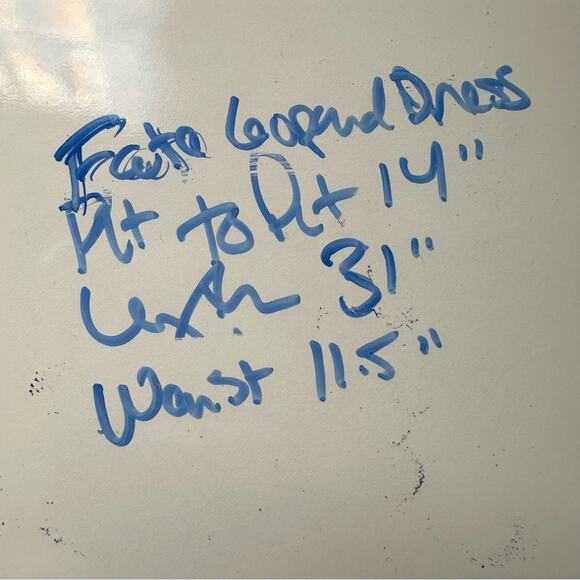 Leopard Dress
Pit to Pit 14"
Length 31"
Waist 11.5"